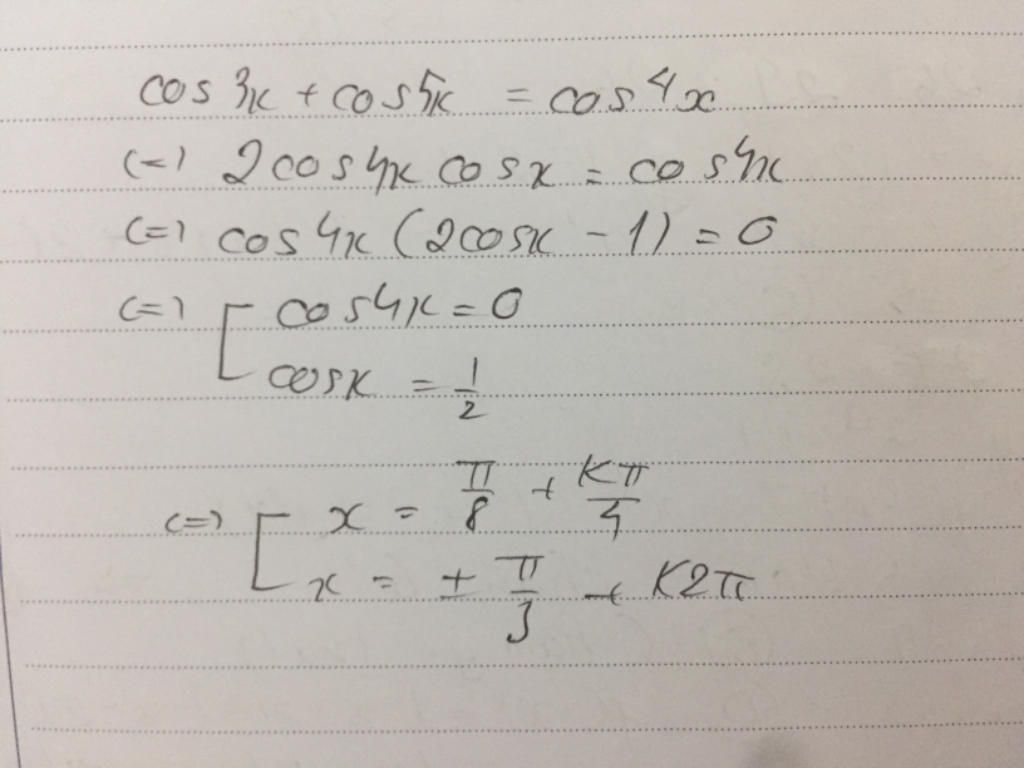 cos3x + cos5x = cos4x
<=> 2cos4x cosx = cos4x
<=> cos4x (2cosx - 1) = 0
<=> [ cos4x = 0
cosx = 1/2
<=> [ x = π/8 + kπ/4
x = ± π/3 + k2π